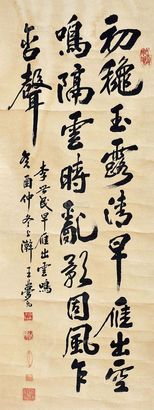 初穐玉露清早雁出空
鳴隔雲時亂影因風乍
含聲
李世民早雁出雲鳴
癸酉仲冬上澣王